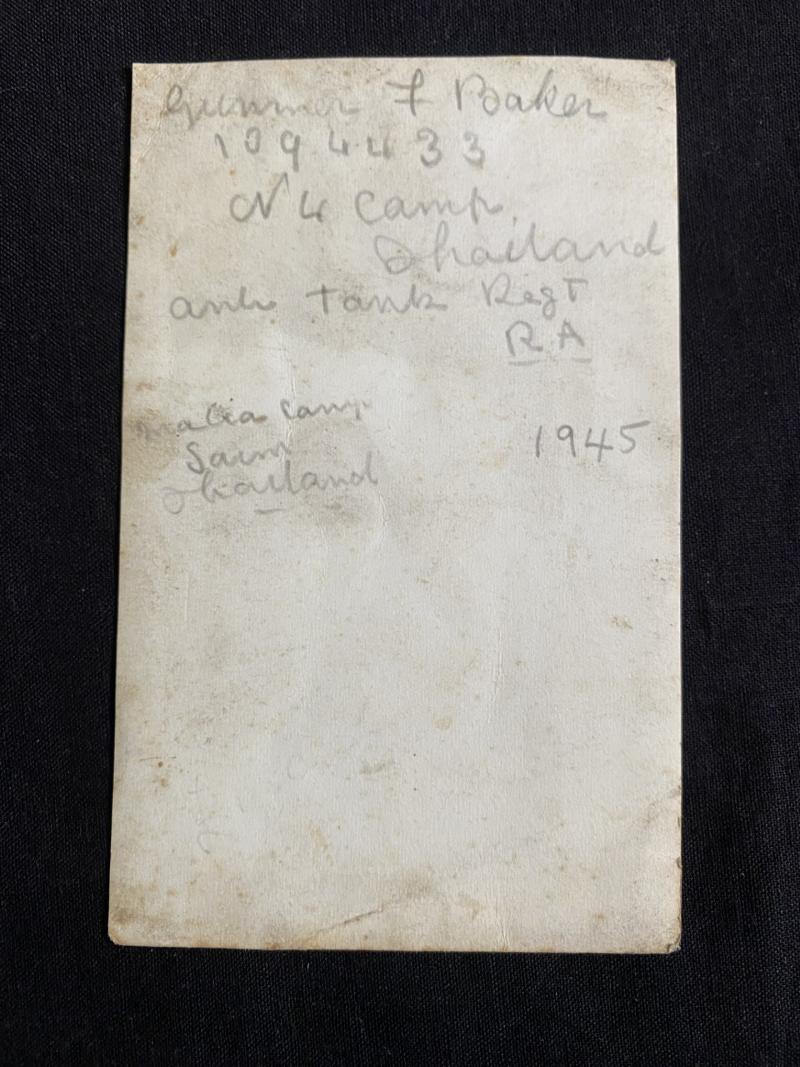 Gunner F Baker
1094433
N 4 Camp
Thailand
anti tank Regt
R A
Camp
1945
Saim
Thailand